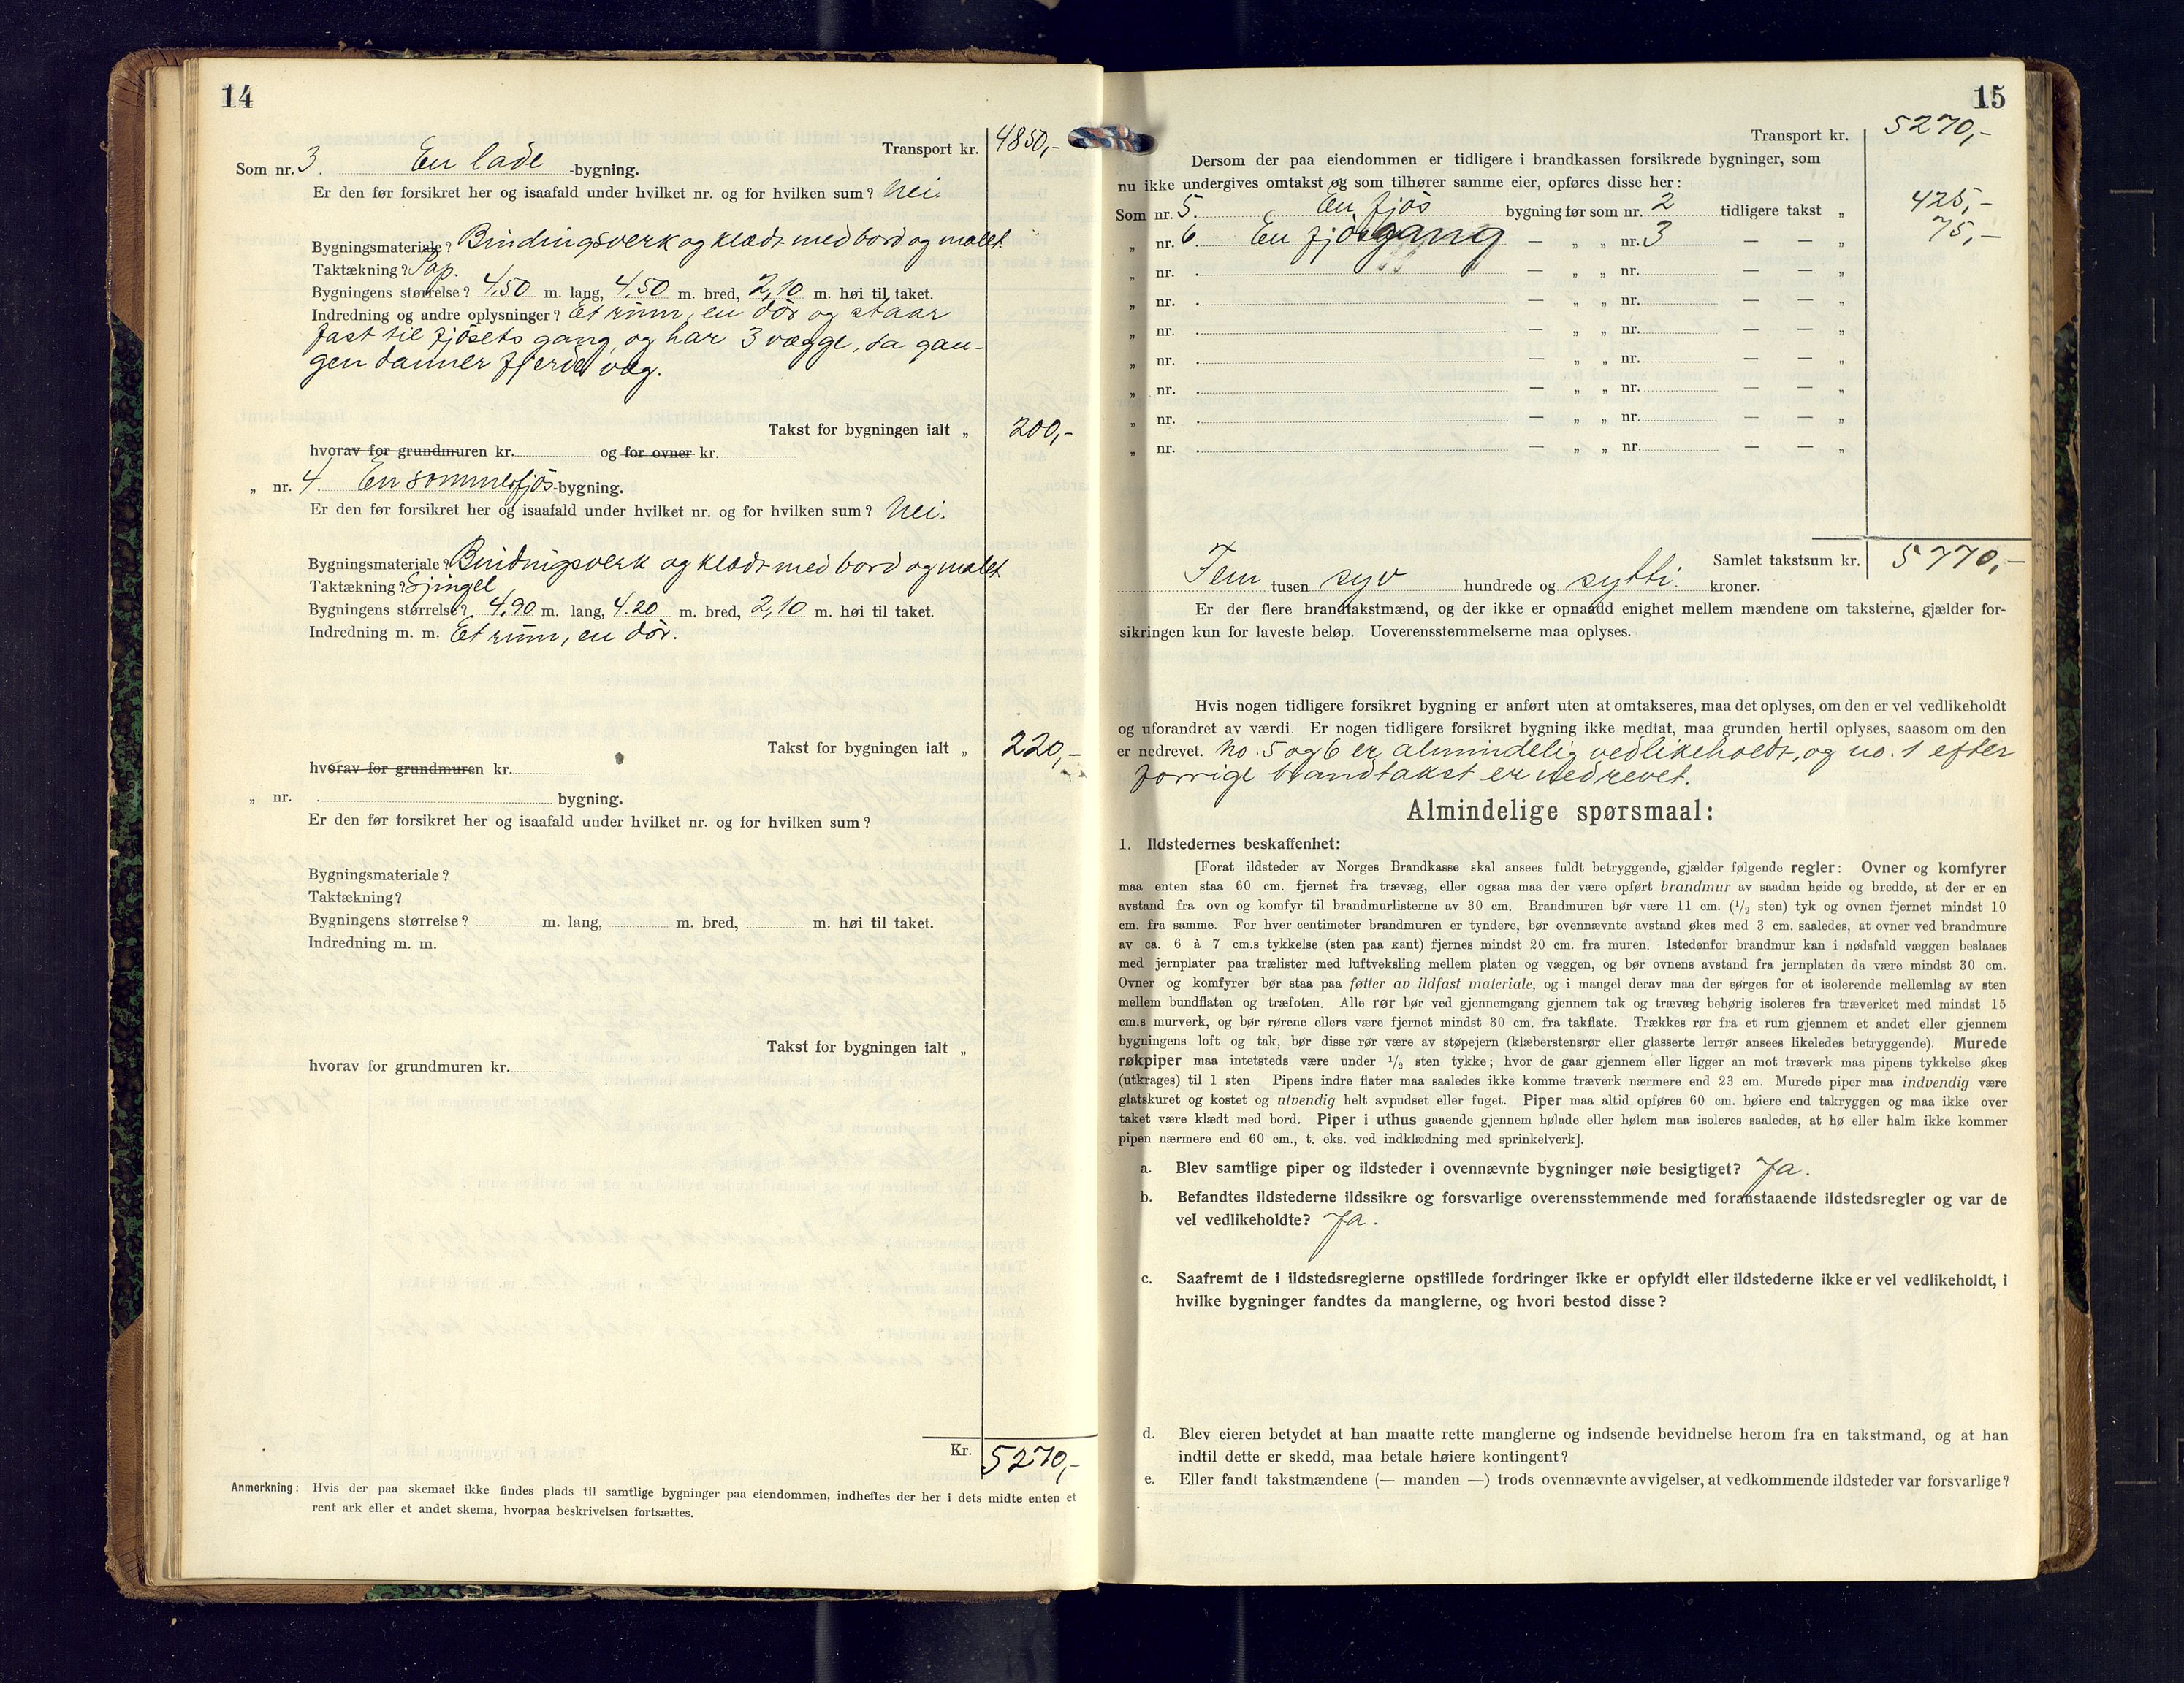 14
Transport kr. 4850,-
Som nr. 3. En lade -bygning.
Er den før forsikret her og isaafald under hvilket nr. og for hvilken sum? Nei.
Bygningsmateriale? Bindingsverk og klædt med bord og malet.
Taktækning? Pap.
Bygningens størrelse? 4,50 m. lang, 4,50 m. bred, 2,10 m. høi til taket.
Indredning og andre oplysninger? Et rum, en dør og staar
fast til fjøsets gang, og har 3 vægge, da gan-
gen danner fjerde væg.
Takst for bygningen ialt „ 200,-
hvorav for grundmuren kr. og for ovner kr.
„ nr. 4. En sommerfjøs-bygning.
Er den før forsikret her og isaafald under hvilket nr. og for hvilken sum? Nei.
Bygningsmateriale? Bindingsverk og klædt med bord og malet.
Taktækning? Spingel
Bygningens størrelse? 4,90 m. lang, 4.20 m. bred, 2,10 m. høi til taket.
Indredning m. m. Et rum, en dør.
Takst for bygningen ialt „ 220,-
hvorav for grundmuren kr.
„ nr. bygning.
Er den før forsikret her og isaafald under hvilket nr. og for hvilken sum?
Bygningsmateriale?
Taktækning?
Bygningens størrelse? m. lang, m. bred, m. høi til taket.
Indredning m. m.
Takst for bygningen ialt „
hvorav for grundmuren kr.
Kr. 5270,-
Anmerkning: Hvis der paa skemaet ikke findes plads til samtlige bygninger paa eiendommen, indheftes der her i dets midte enten et
rent ark eller et andet skema, hvorpaa beskrivelsen fortsættes.
15
Transport kr. 5270,-
Dersom der paa eiendommen er tidligere i brandkassen forsikrede bygninger, som
nu ikke undergives omtakst og som tilhører samme eier, opføres disse her:
Som nr. 5. En fjøs bygning før som nr. 2 tidligere takst „ 425,-
„ nr. 6. En fjøsgang — „ „ nr. 3 — — „ 75,-
„ nr. . — „ „ nr. — — „
„ nr. . — „ „ nr. — — „
„ nr. . — „ „ nr. — — „
„ nr. . — „ „ nr. — — „
„ nr. . — „ „ nr. — — „
„ nr. . — „ „ nr. — — „
„ nr. . — „ „ nr. — — „
Samlet takstsum kr. 5770,-
Fem tusen syv hundrede og sytti. kroner.
Er der flere brandtakstmænd, og der ikke er opnaadd enighet mellem mændene om taksterne, gjælder for-
sikringen kun for laveste beløp. Uoverensstemmelserne maa oplyses.
Hvis nogen tidligere forsikret bygning er anført uten at omtakseres, maa det oplyses, om den er vel vedlikeholdt
og uforandret av værdi. Er nogen tidligere forsikret bygning ikke medtat, maa grunden hertil oplyses, saasom om den
er nedrevet. No. 5 og 6 er almindelig vedlikeholdt, og no. 1 efter
forrige brandtakst er nedrevet.
Almindelige spørsmaal:
1. Ildstedernes beskaffenhet:
[Forat ildsteder av Norges Brandkasse skal ansees fuldt betryggende, gjælder følgende regler: Ovner og komfyrer
maa enten staa 60 cm. fjernet fra trævæg, eller ogsaa maa der være opført brandmur av saadan høide og bredde, at der er en
avstand fra ovn og komfyr til brandmurlisterne av 30 cm. Brandmuren bør være 11 cm. (1/2 sten) tyk og ovnen fjernet mindst 10
cm. fra samme. For hver centimeter brandmuren er tyndere, bør ovennævnte avstand økes med 3 cm. saaledes, at ovner ved brandmure
av ca. 6 à 7 cm.s tykkelse (sten paa kant) fjernes mindst 20 cm. fra muren. Istedenfor brandmur kan i nødsfald væggen beslaaes
med jernplater paa trælister med luftveksling mellem platen og væggen, og bør ovnens avstand fra jernplaten da være mindst 30 cm.
Ovner og komfyrer bør staa paa føtter av ildfast materiale, og i mangel derav maa der sørges for et isolerende mellemlag av sten
mellem bundflaten og træfoten. Alle rør bør ved gjennemgang gjennem tak og trævæg behørig isoleres fra træverket med mindst 15
cm.s murverk, og bør rørene ellers være fjernet mindst 30 cm. fra takflate. Trækkes rør fra et rum gjennem et andet eller gjennem
bygningens loft og tak, bør disse rør være av støpejern (klæberstensrør eller glasserte lerrør ansees likeledes betryggende). Murede
røkpiper maa intetsteds være under 1/2 sten tykke; hvor de gaar gjennem eller ligger an mot træverk maa pipens tykkelse økes
(utkrages) til 1 sten Pipens indre flater maa saaledes ikke komme træverk nærmere end 23 cm. Murede piper maa indvendig være
glatskuret og kostet og utvendig helt avpudset eller fuget. Piper maa altid opføres 60 cm. høiere end takryggen og maa ikke over
taket være klædt med bord. Piper i uthus gaaende gjennem hølade eller hølem maa isoleres saaledes, at hø eller halm ikke kommer
pipen nærmere end 60 cm., t. eks. ved indklædning med sprinkelverk].
a. Blev samtlige piper og ildsteder i ovennævnte bygninger nøie besigtiget? Ja.
b. Befandtes ildstederne ildssikre og forsvarlige overensstemmende med foranstaaende ildstedsregler og var de
vel vedlikeholdte? Ja.
c. Saafremt de i ildstedsreglerne opstillede fordringer ikke er opfyldt eller ildstederne ikke er vel vedlikeholdt, i
hvilke bygninger fandtes da manglerne, og hvori bestod disse?
d. Blev eieren betydet at han maatte rette manglerne og indsende bevidnelse herom fra en takstmand, og at han
indtil dette er skedd, maa betale høiere kontingent?
e. Eller fandt takstmændene (— manden —) trods ovennævnte avvigelser, at vedkommende ildsteder var forsvarlige?